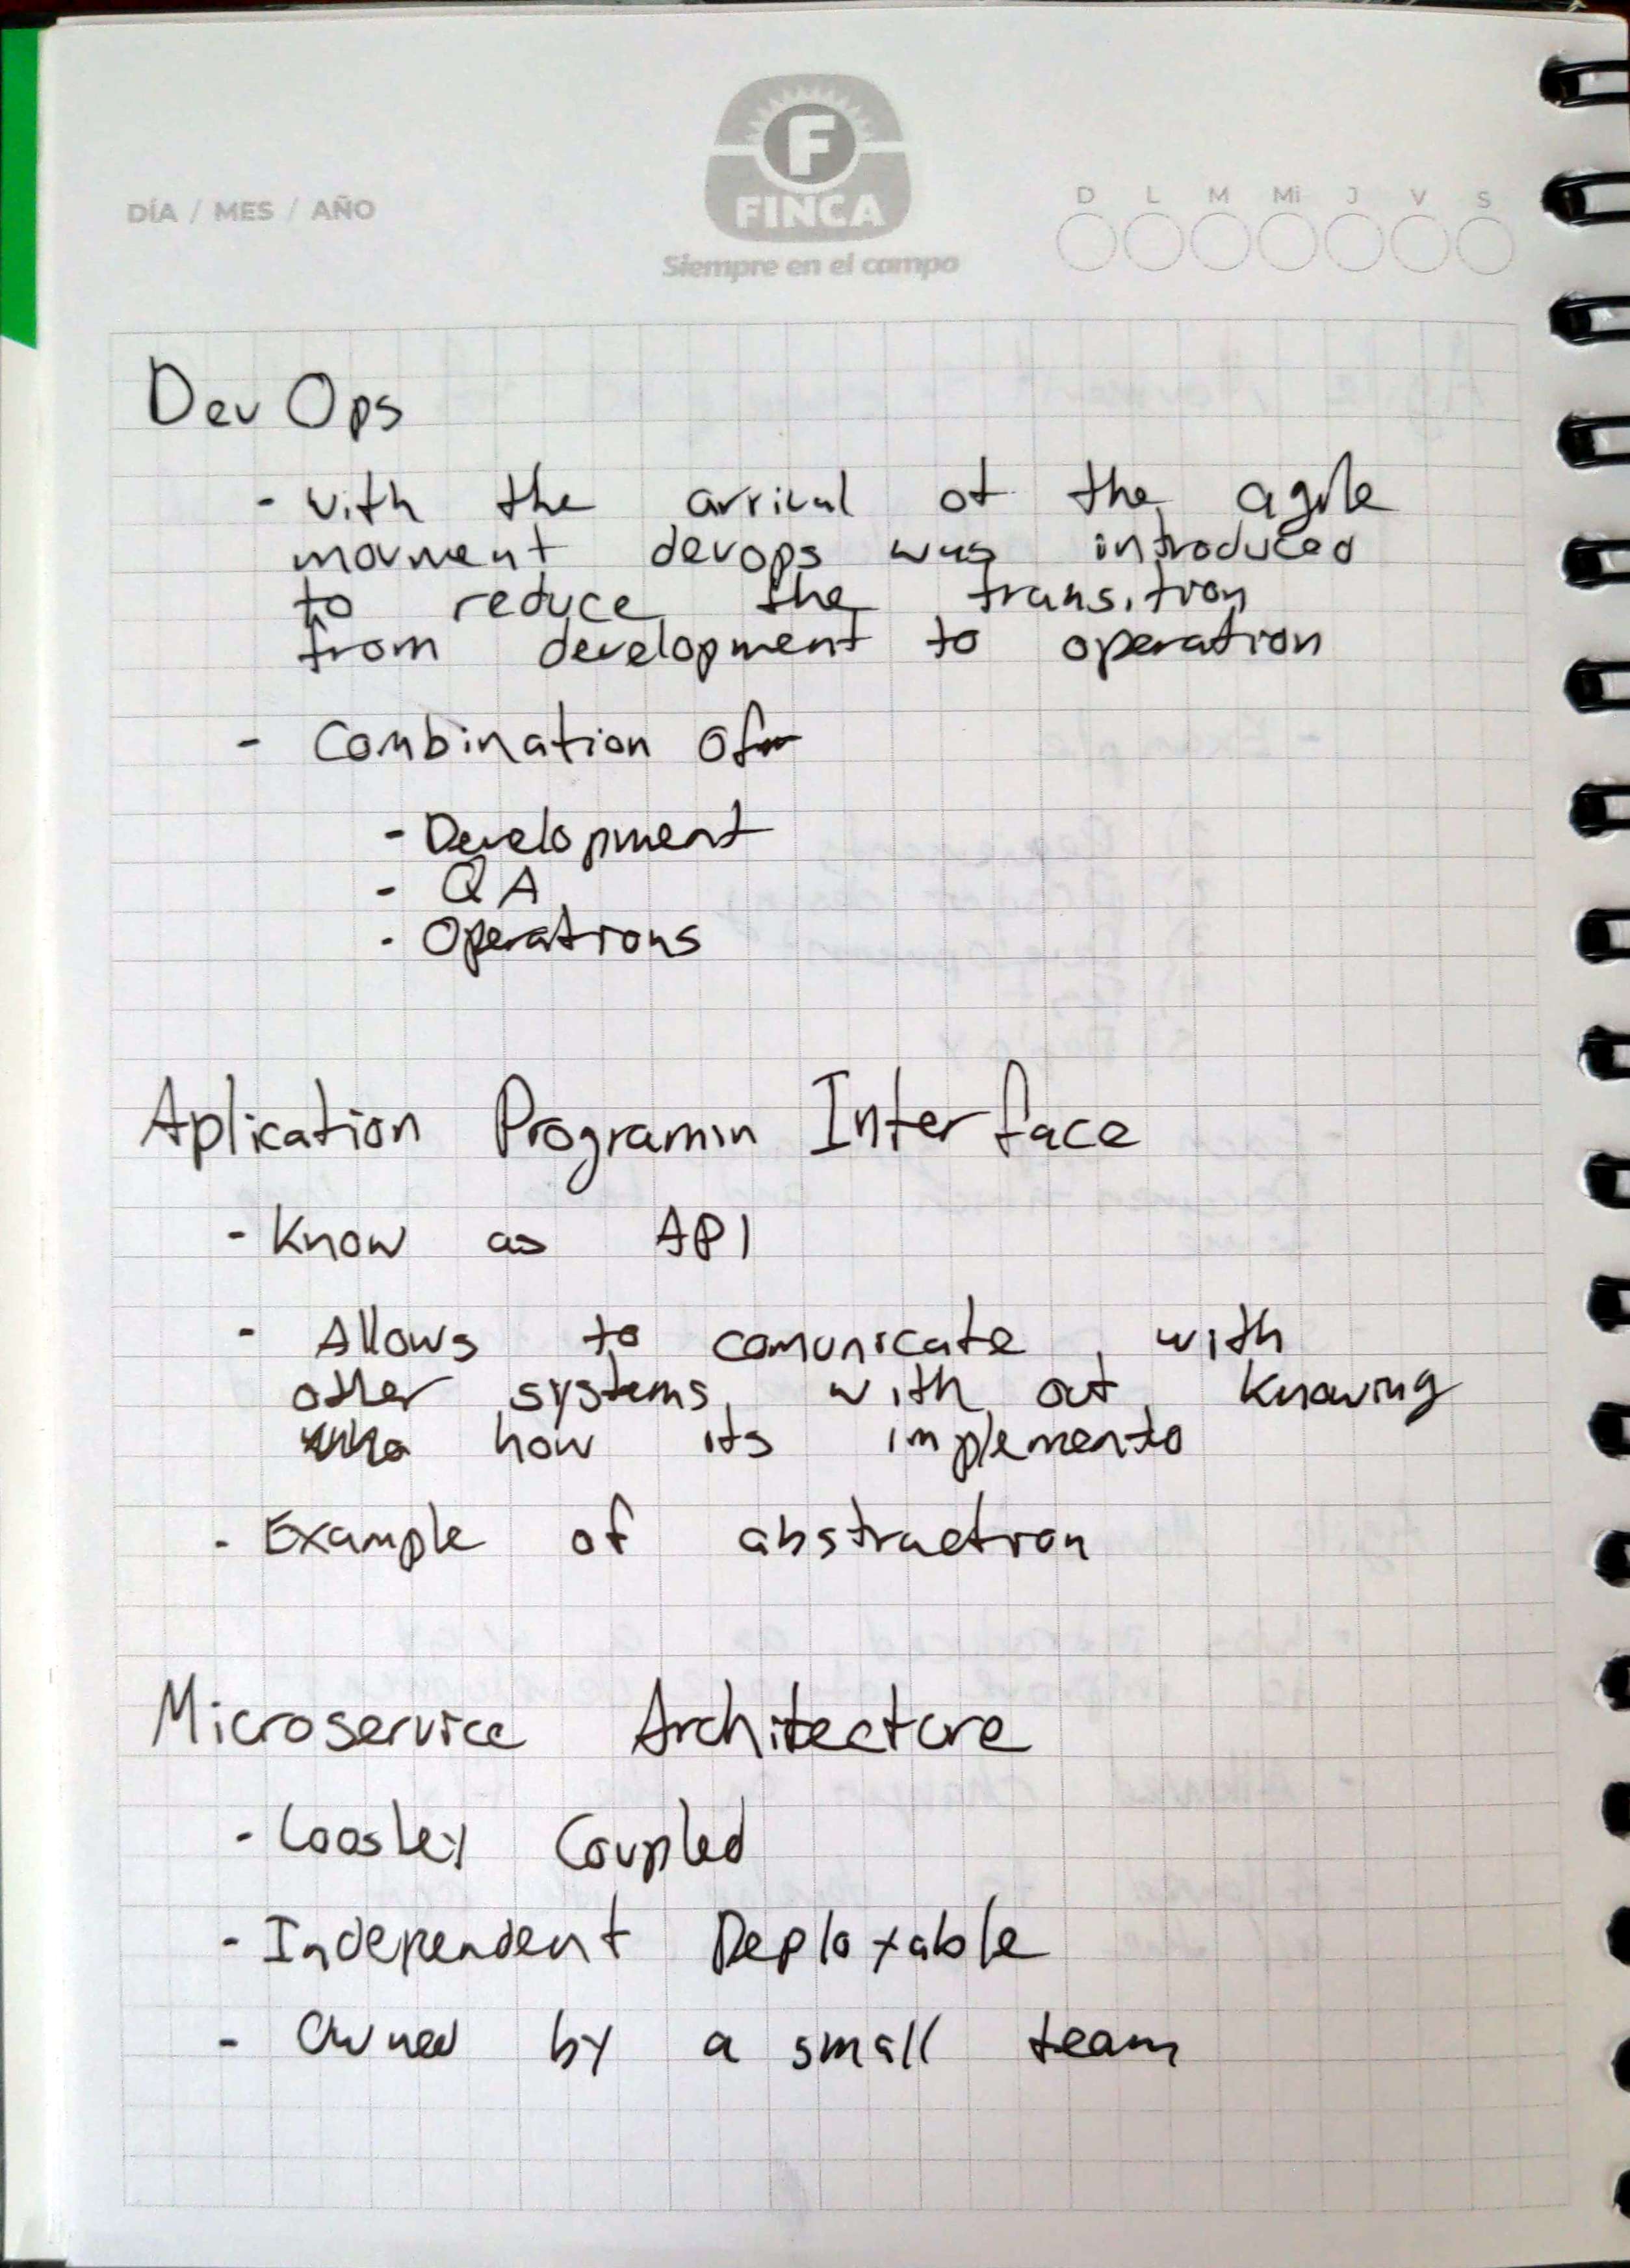 DÍA / MES / AÑO
F
FINCA
Siempre en el campo
D L M Mi J V S
DevOps
- with the arrival of the agile
movment devops was introduced
to reduce the transition
from development to operation
- Combination of
- Development
- QA
- Operations
Aplication Programin Interface
- Know as API
- Allows to comunicate with
other systems, with out knowing
how its implemento
- Example of abstraction
Microservice Architecture
- Loosley Coupled
- Independent Deployable
- Owned by a small team